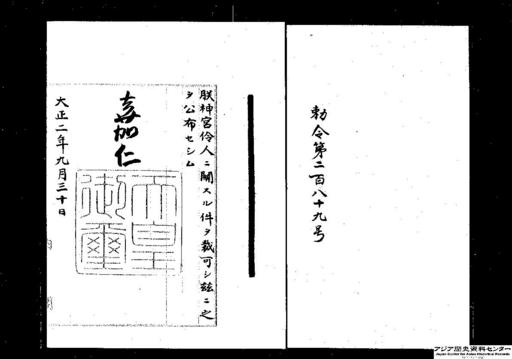 勅令第二百八十九号
朕神宮伶人ニ關スル件ヲ裁可シ茲ニ之
ヲ公布セシム
嘉仁
天皇
御璽
大正二年九月三十日
アジア歴史資料センター
Japan Center for Asian Historical Records